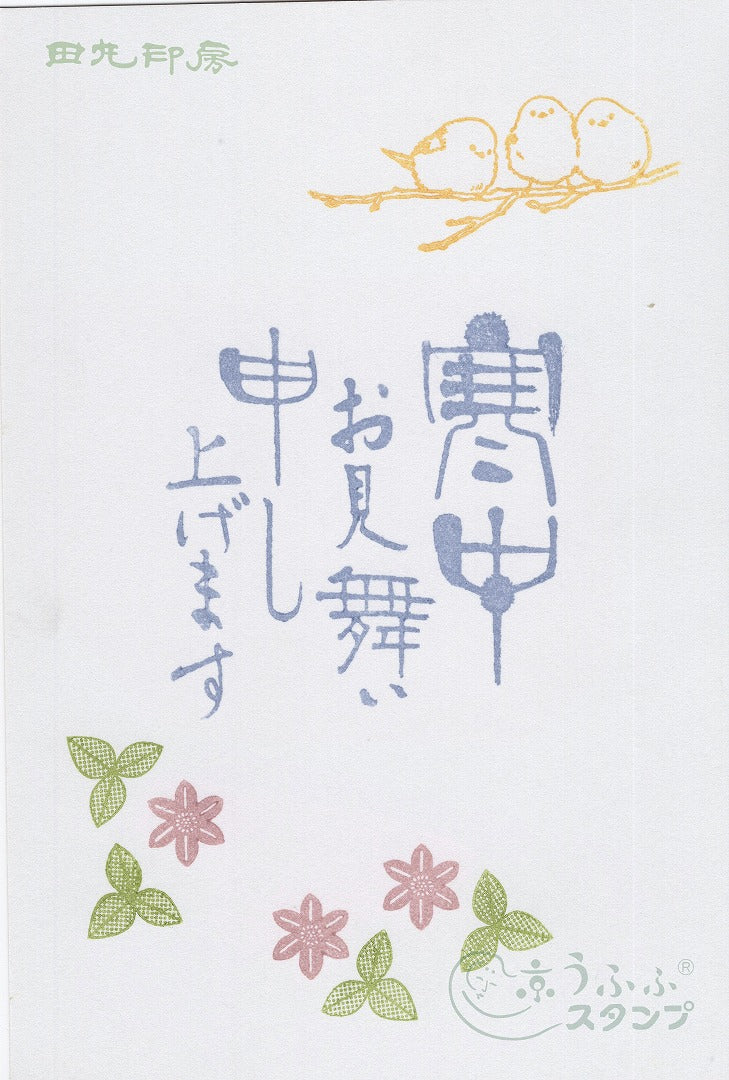 田丸印房
寒中
お見舞い
申し
上げます
京うふふ®
スタンプ